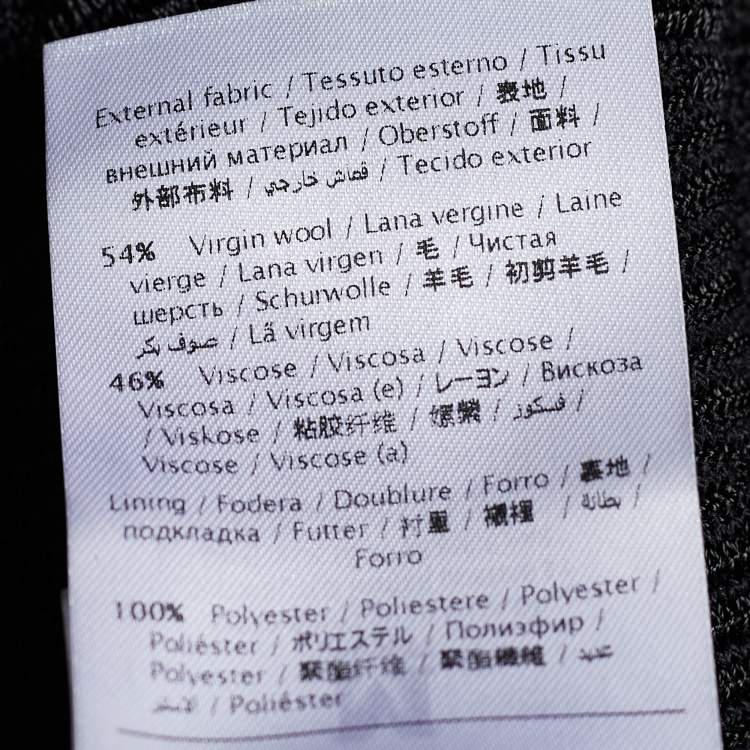 External fabric / Tessuto esterno / Tissu
extérieur / Tejido exterior / 表地 /
внешний материал / Oberstoff / 面料 /
外部布料 / قماش خارجي / Tecido exterior
54% Virgin wool / Lana vergine / Laine
vierge / Lana virgen / 毛 / Чистая
шерсть / Schurwolle / 羊毛 / 初剪羊毛 /
صوف بكر / Lã virgem
46% Viscose / Viscosa / Viscose /
Viscosa / Viscosa (e) / レーヨン / Вискоза
/ Viskose / 粘胶纤维 / 嫘縈 / فسكوز /
Viscose / Viscose (a)
Lining / Fodera / Doublure / Forro / 裏地 /
подкладка / Futter / 衬里 / 襯裡 / بطانة /
Forro
100% Polyester / Poliestere / Polyester /
Poliéster / ポリエステル / Полиэфир /
Polyester / 聚酯纤维 / 聚酯纖維 /
/ Poliéster